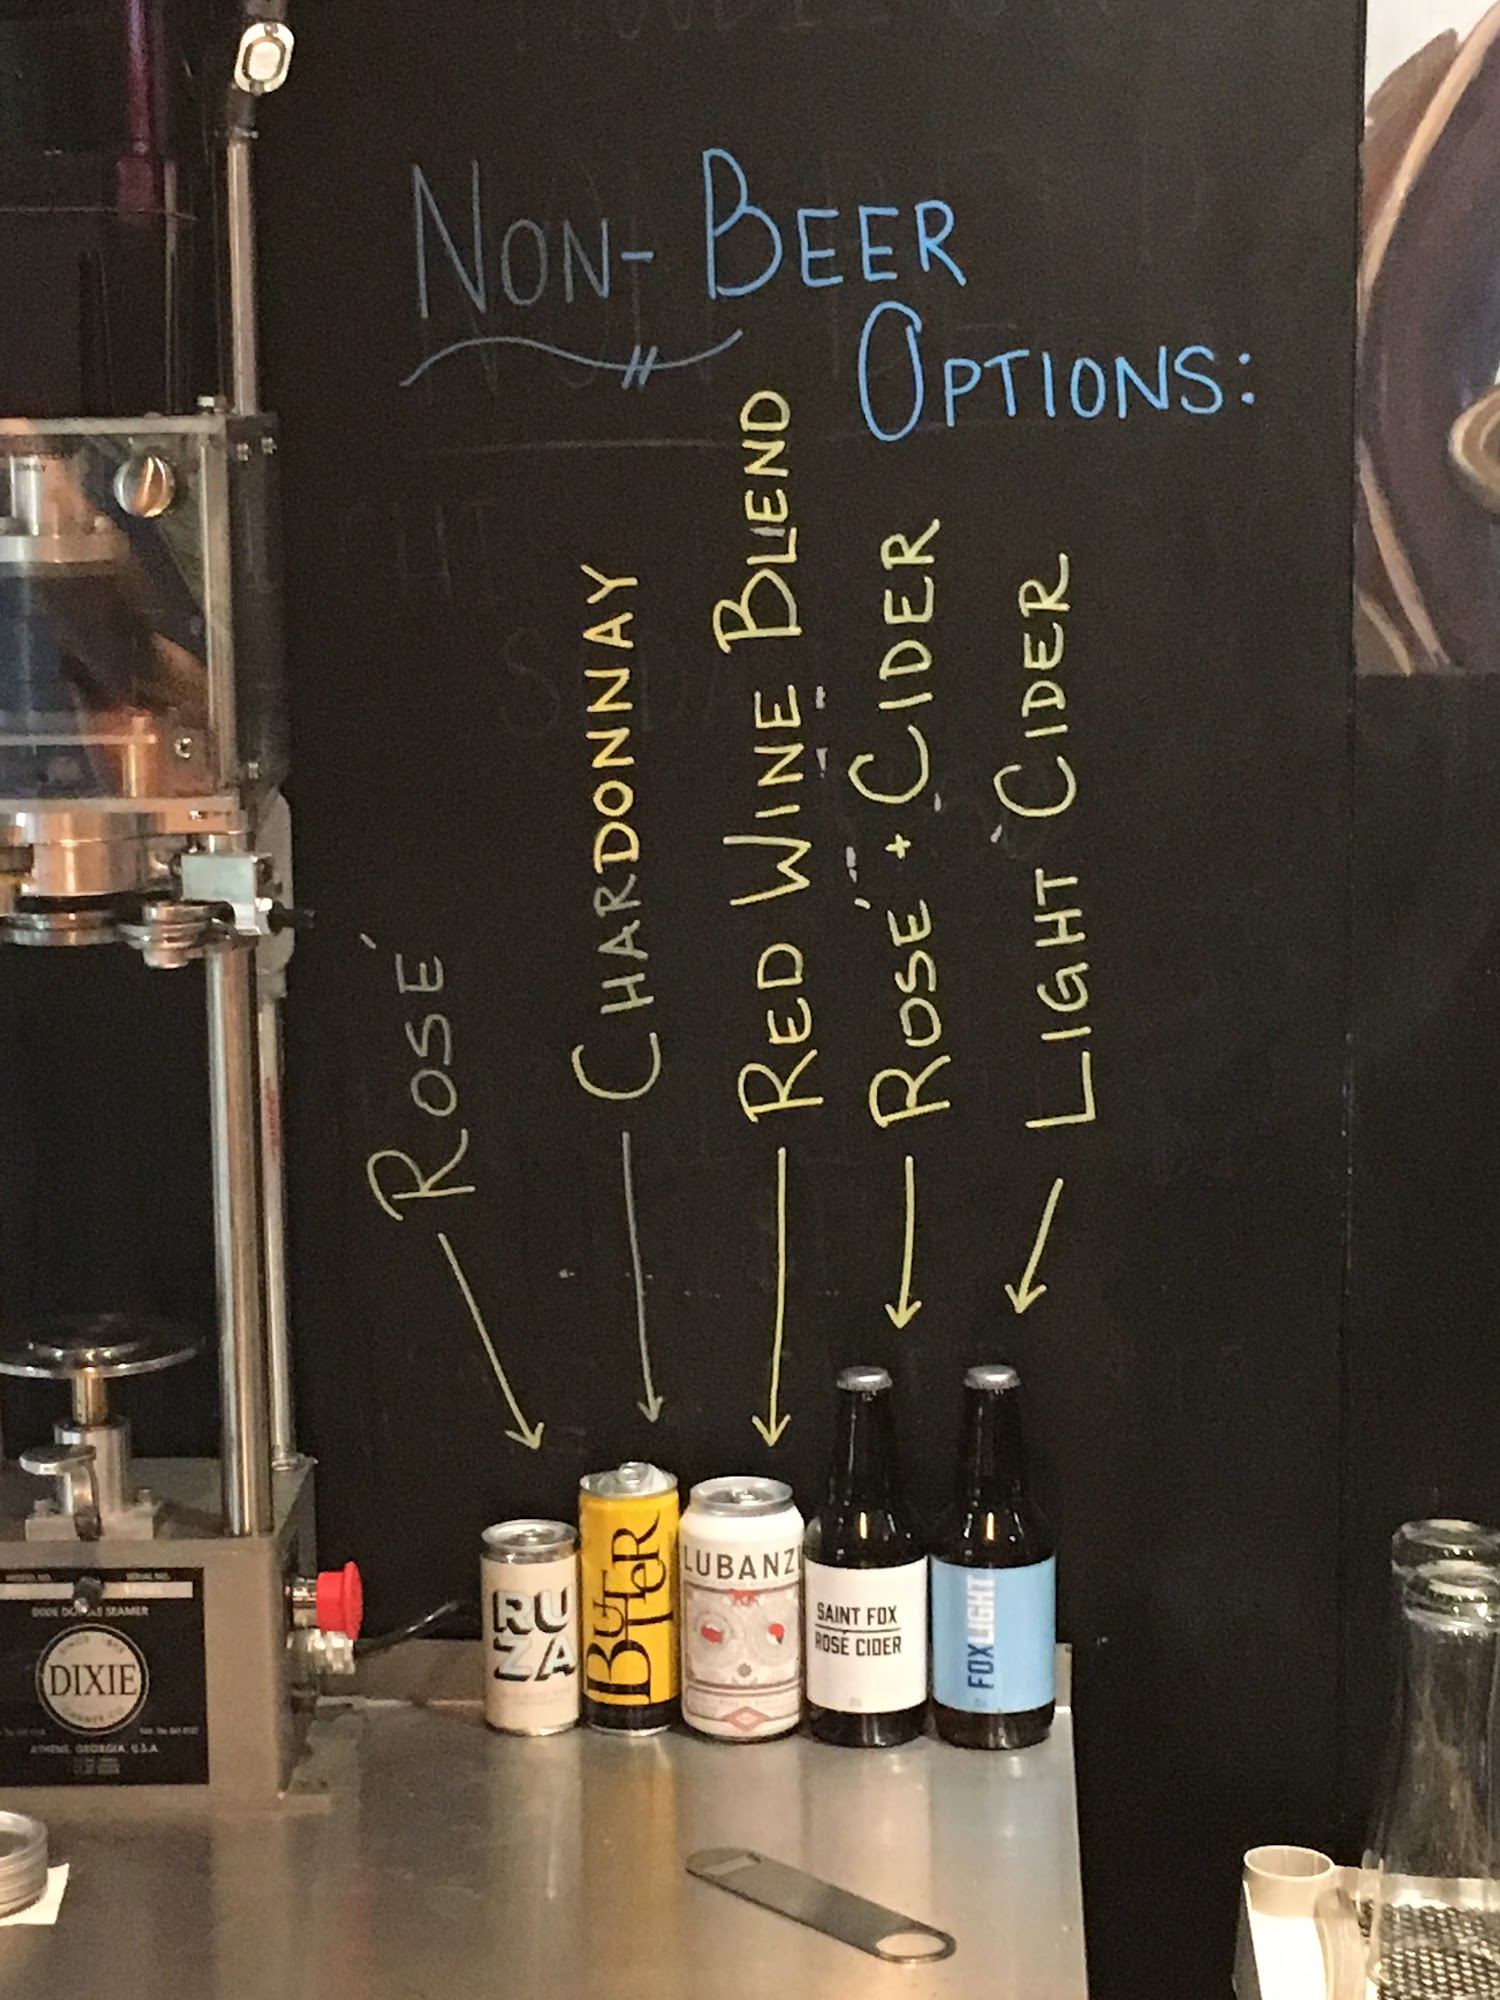 NON-BEER
OPTIONS:
ROSÉ
CHARDONNAY
RED WINE BLEND
ROSÉ + CIDER
LIGHT CIDER
RU
ZA
BUTTER
LUBANZI
SAINT FOX
ROSÉ CIDER
FOX LIGHT
MODEL NO.
SERIAL NO.
DIXIE DOUBLE SEAMER
DIXIE
CANNER CO.
ATHENS, GEORGIA, U.S.A.